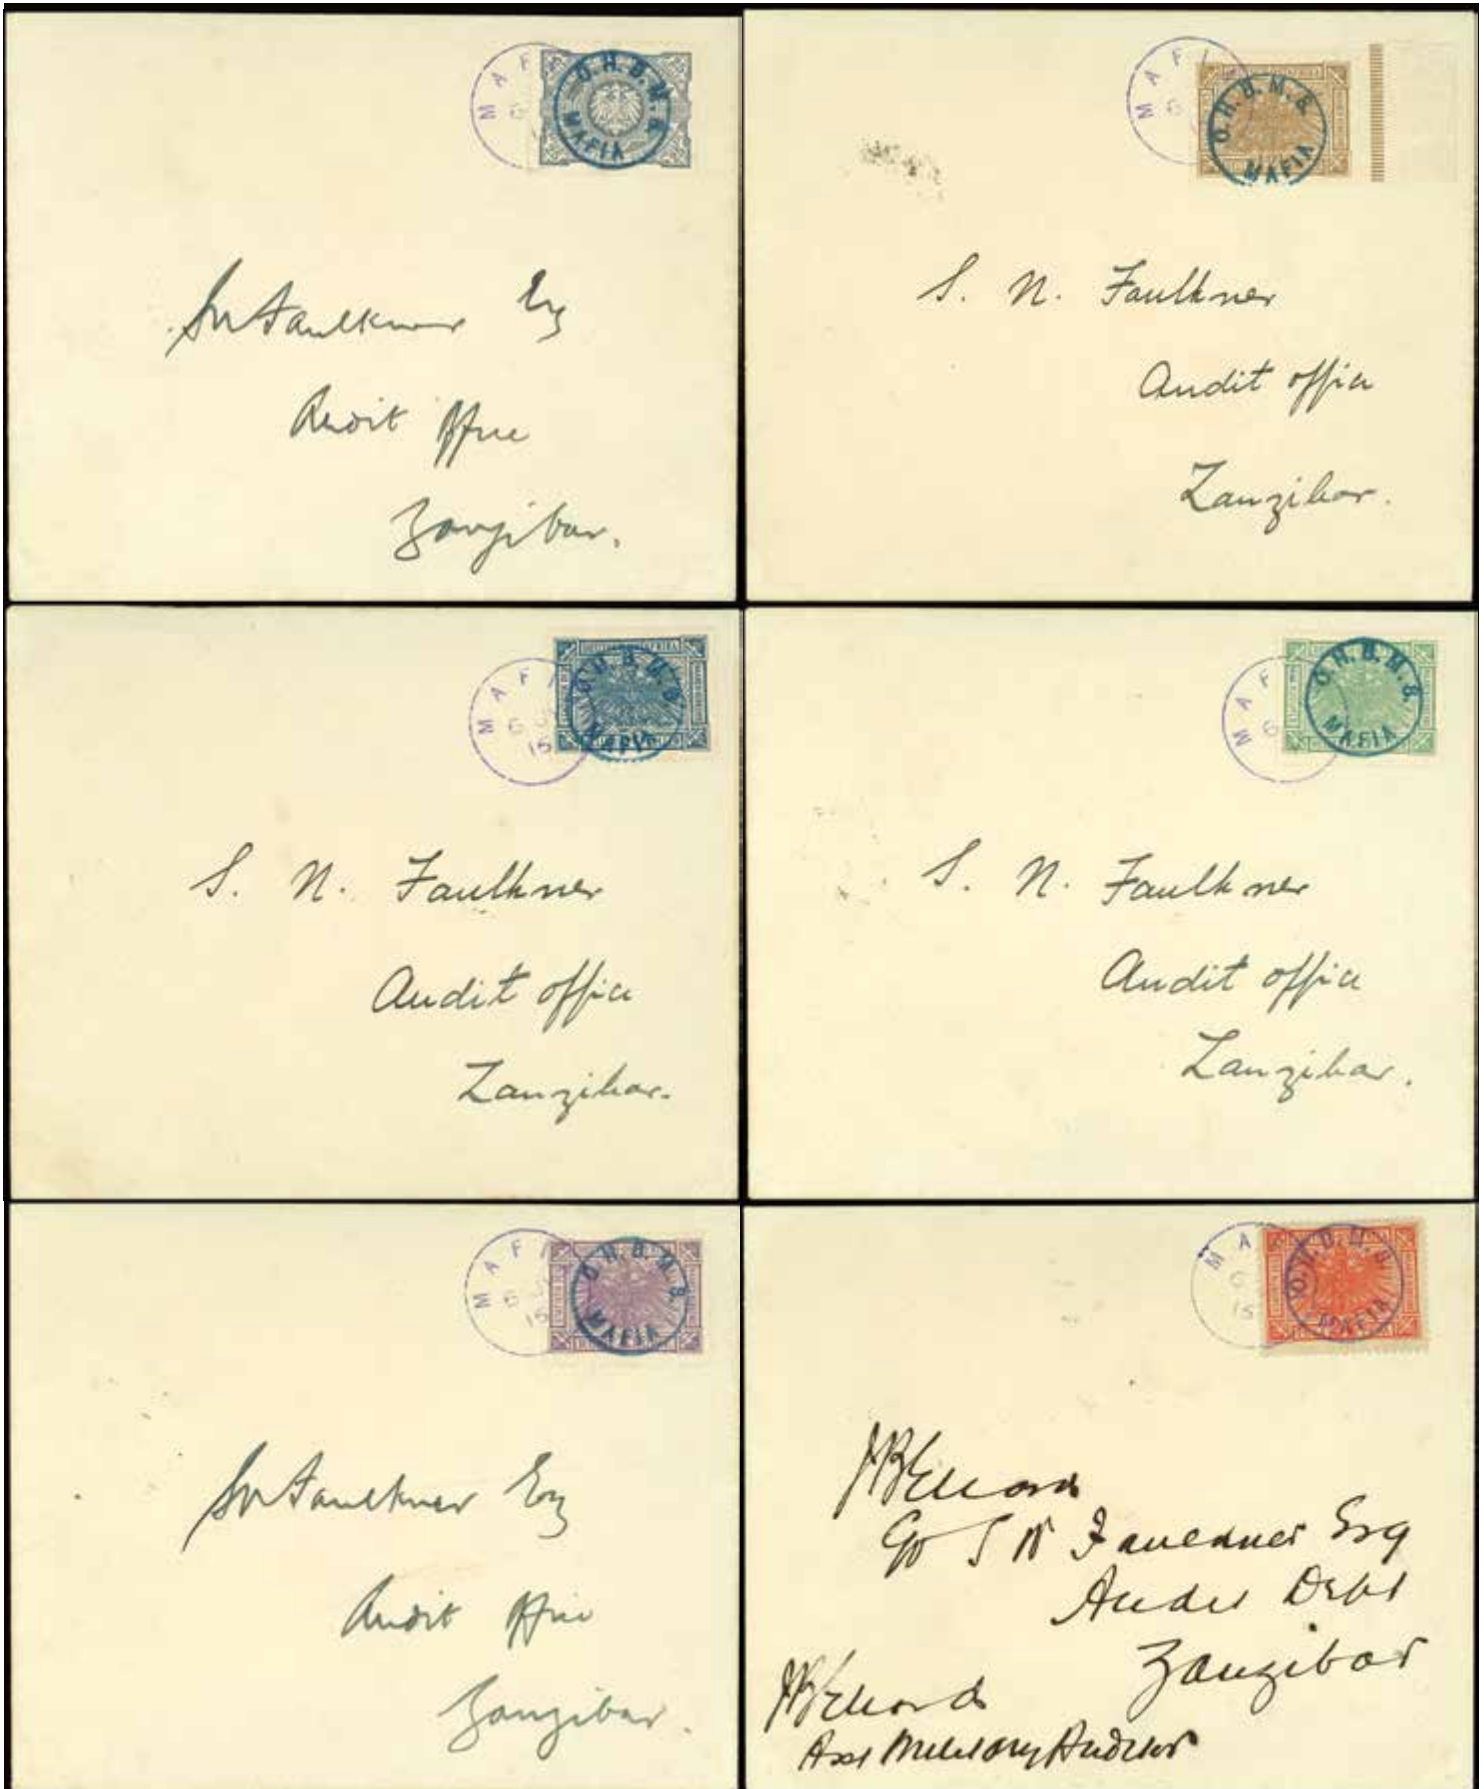 MAFI
O.H.B.M.S.
MAFIA
Faulkner Esq
Audit Office
Zanzibar.
MAFI
O.H.B.M.S.
MAFIA
S. N. Faulkner
Audit office
Zanzibar.
MAFI
15
AFRIKA
O.H.B.M.S.
MAFIA
S. N. Faulkner
Audit office
Zanzibar.
MAF
6
O.H.B.M.S.
MAFIA
S. N. Faulkner
Audit office
Zanzibar.
MAFI
15
O.H.B.M.S.
MAFIA
Faulkner Esq
Audit Office
Zanzibar.
MA
15
O.H.B.M.S.
MAFIA
S N Faulkner Esq
Audit Dept
Zanzibar
Military Auditor